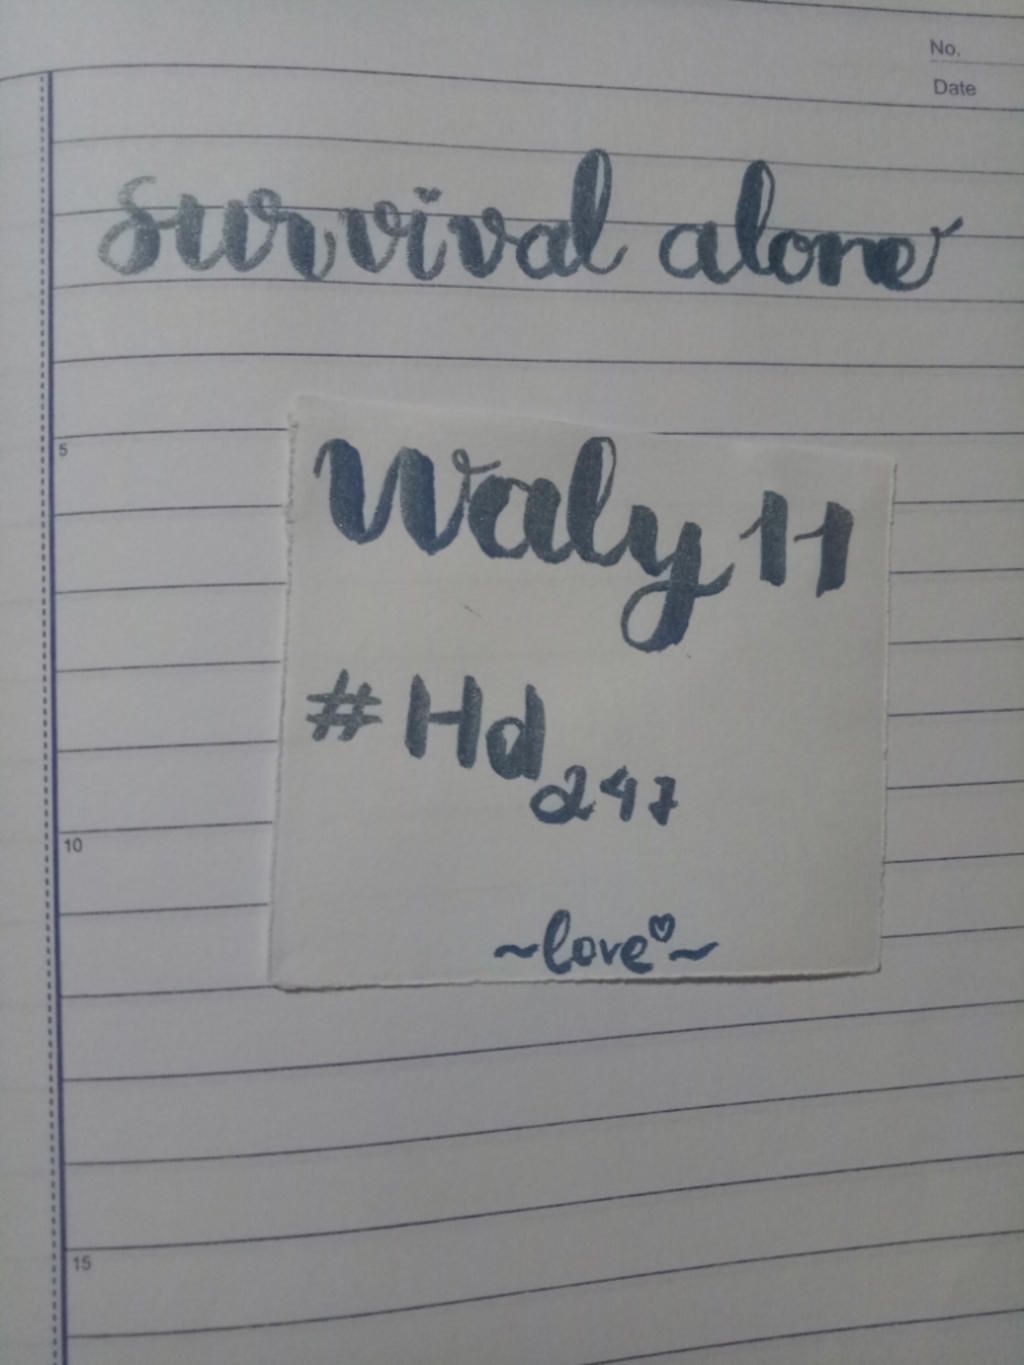 No.
Date
survival alone
5
Waly 11
#Hd247
10
~love~
15